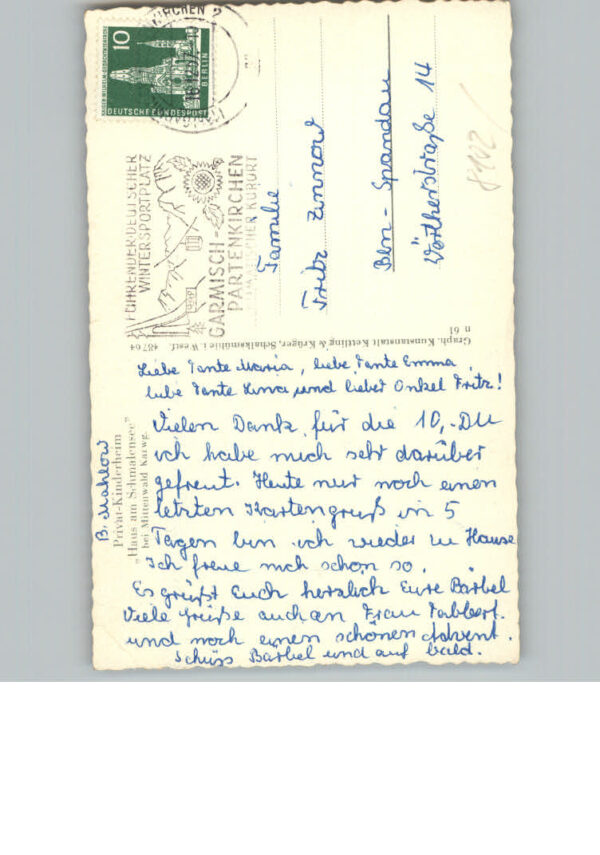 10
KAISER-WILHELM-GEDÄCHTNISKIRCHE
BERLIN
DEUTSCHE BUNDESPOST
KIRCHEN 2
FÜHRENDER DEUTSCHER
WINTERSPORTPLATZ
GARMISCH-
PARTENKIRCHEN
KURORT
Familie
Fritz Zinnow
Bln - Spandau
Wörtherstraße 14
8102/
n 61
Graph. Kunstanstalt Kettling & Krüger, Schalksmühle i. Westf. 48764
B. Mahlow
Privat-Kinderheim
„Haus am Schmalensee"
bei Mittenwald Karwg.
Liebe Tante Maria, liebe Tante Emma,
liebe Tante Lina und lieber Onkel Fritz!
Vielen Dank für die 10,- DM
ich habe mich sehr darüber
gefreut. Heute nur noch einen
letzten Kartengruß in 5
Tagen bin ich wieder zu Hause
Ich freue mich schon so.
Es grüßt Euch herzlich Eure Bärbel
Viele Grüße auch an Frau Tabbert.
und noch einen schönen Advent.
Schüss Bärbel und auf bald.